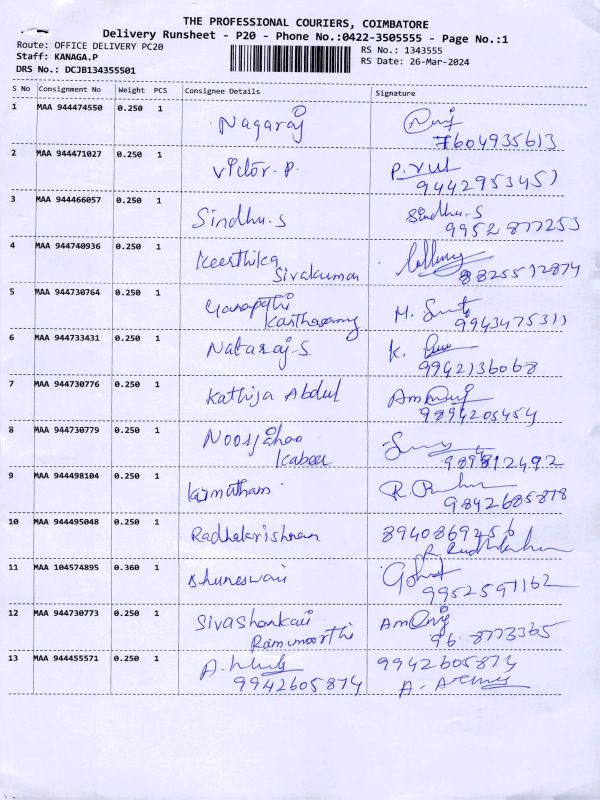 THE PROFESSIONAL COURIERS, COIMBATORE
Delivery Runsheet - P20 - Phone No.:0422-3505555 - Page No.:1
Route: OFFICE DELIVERY PC20 RS No.: 1343555
Staff: KANAGA.P RS Date: 26-Mar-2024
DRS No.: DCJB134355501
S No Consignment No Weight PCS Consignee Details Signature
1 MAA 944474550 0.250 1 Nagaraj
7604935613
2 MAA 944471027 0.250 1 Victor. P.
9442953457
3 MAA 944466057 0.250 1 Sindhu.S Sindhu.S
9952877253
4 MAA 944740936 0.250 1 Keerthika
Sivakumar 8825512874
5 MAA 944730764 0.250 1 Ganapathi M.
Kanthasamy 9943475311
6 MAA 944733431 0.250 1 Nataraj.S K.
9942136068
7 MAA 944730776 0.250 1 Kathija Abdul
9894205454
8 MAA 944730779 0.250 1 Noorjahan
Kabeer
9 MAA 944498104 0.250 1 R.
9842685878
10 MAA 944495048 0.250 1 Radhakrishnan 8940869256
R
11 MAA 104574895 0.360 1 Bhuneswari
9952591162
12 MAA 944730773 0.250 1 Sivashankari
Rammoorthi
13 MAA 944455571 0.250 1 A. 9942605874
9942605874 A.